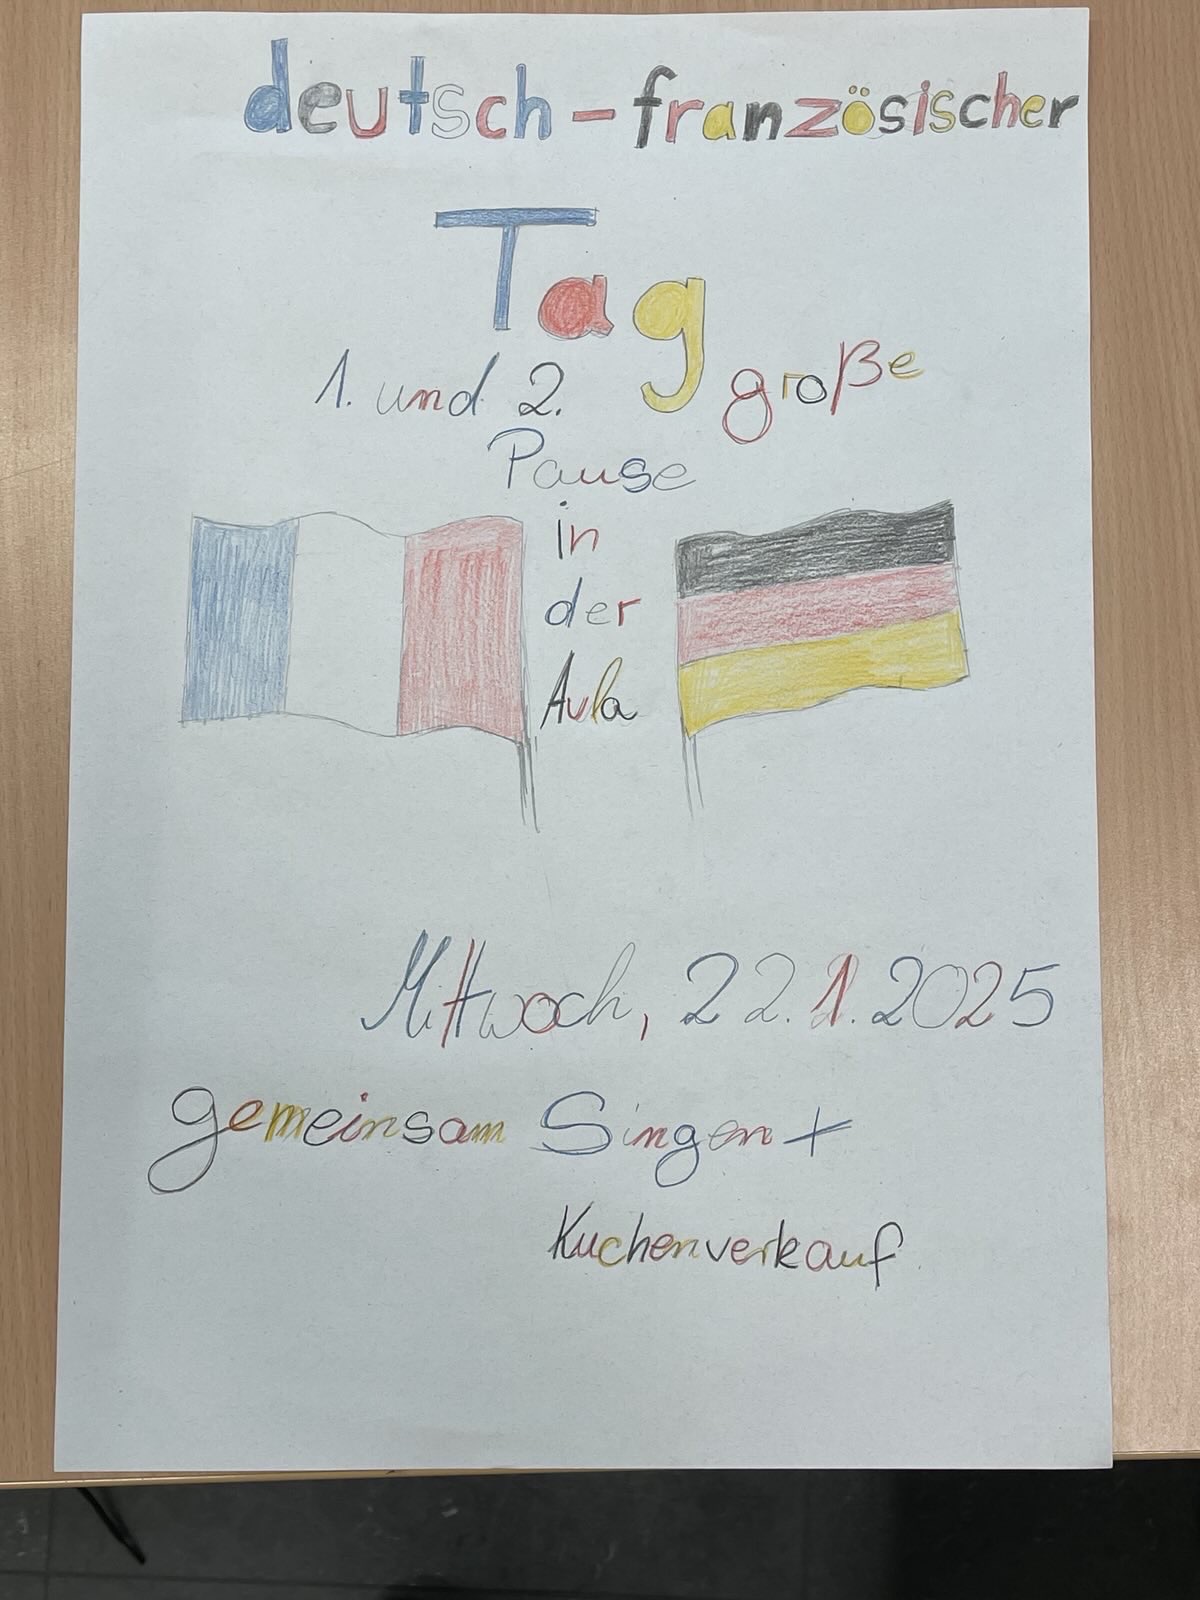 deutsch-französischer
Tag
1. und 2. große
Pause
in
der
Aula
Mittwoch, 22.1.2025
gemeinsam Singen +
Kuchenverkauf